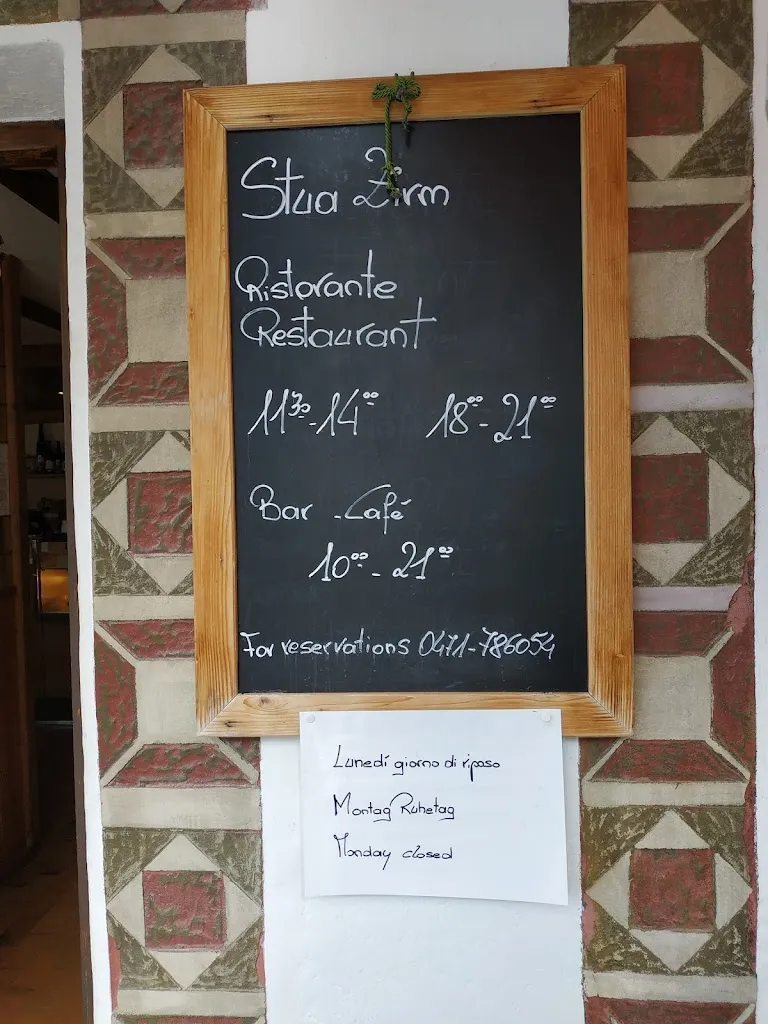 Stua Zirm
Ristorante
Restaurant
11³⁰-14⁰⁰ 18⁰⁰-21⁰⁰
Bar - Café
10⁰⁰-21⁰⁰
For reservations 0471-786054
Lunedí giorno di riposo
Montag Ruhetag
Monday closed